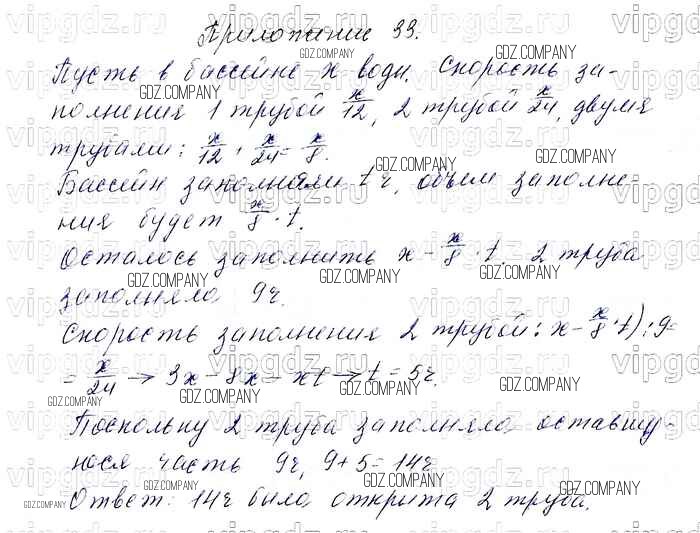 Приложение 33.
Пусть в бассейне x воды. Скорость за-
полнения 1 трубой x/12, 2 трубой x/24, двумя
трубами: x/12 + x/24 = x/8.
Бассейн заполняли t ч, объем заполне-
ния будет x/8 · t.
Осталось заполнить x - x/8 · t. 2 труба
заполняла 9ч.
Скорость заполнения 2 трубой: x - x/8 · t) : 9 =
= x/24 → 3x - 8x - xt → t = 5ч.
Поскольку 2 труба заполняла оставшу-
юся часть 9ч, 9+5=14ч
Ответ: 14ч была открыта 2 труба.
vipgdz.ru
GDZ.COMPANY